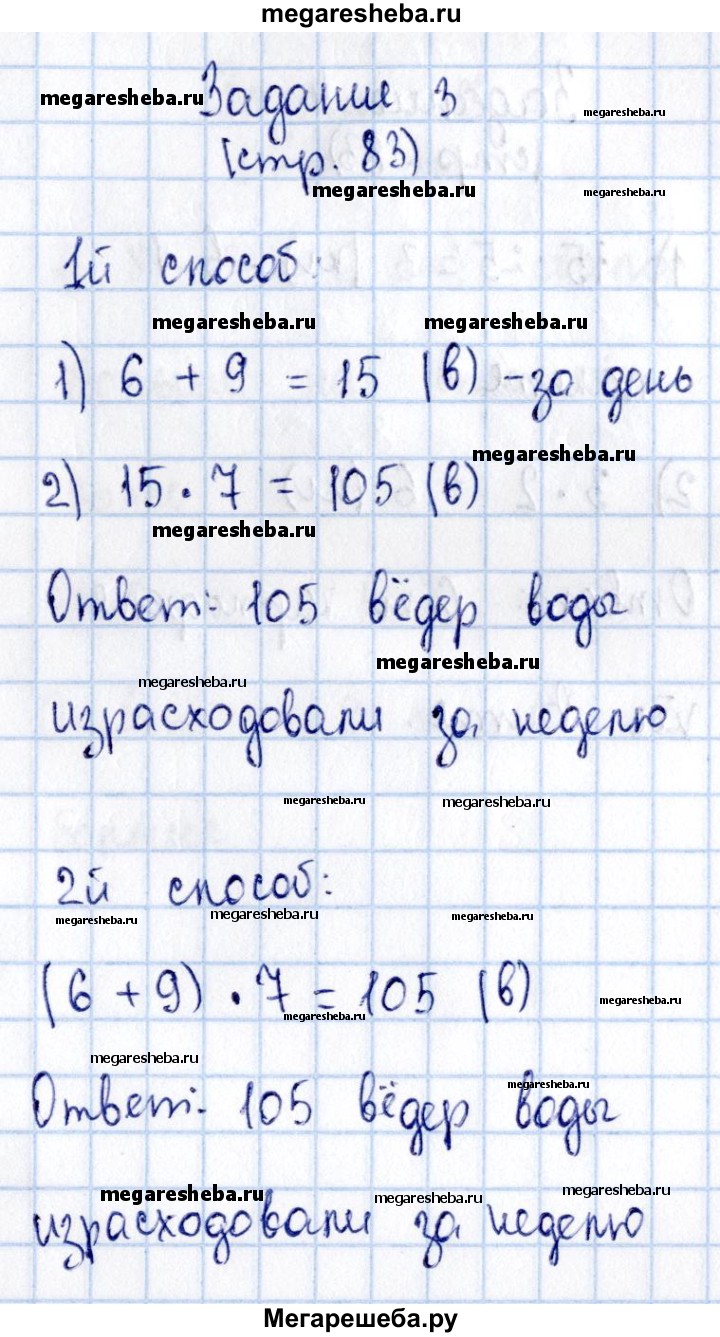 megaresheba.ru
Задание 3
megaresheba.ru megaresheba.ru
(стр. 83)
megaresheba.ru megaresheba.ru
1й способ:
megaresheba.ru megaresheba.ru
1) 6 + 9 = 15 (в) - за день
megaresheba.ru
2) 15 · 7 = 105 (в)
megaresheba.ru
Ответ: 105 вёдер воды
megaresheba.ru
megaresheba.ru
израсходовали за неделю
megaresheba.ru megaresheba.ru
2й способ:
megaresheba.ru megaresheba.ru megaresheba.ru
(6 + 9) · 7 = 105 (в)
megaresheba.ru
megaresheba.ru
megaresheba.ru
megaresheba.ru
Ответ: 105 вёдер воды
megaresheba.ru megaresheba.ru megaresheba.ru
израсходовали за неделю
Мегарешеба.ру